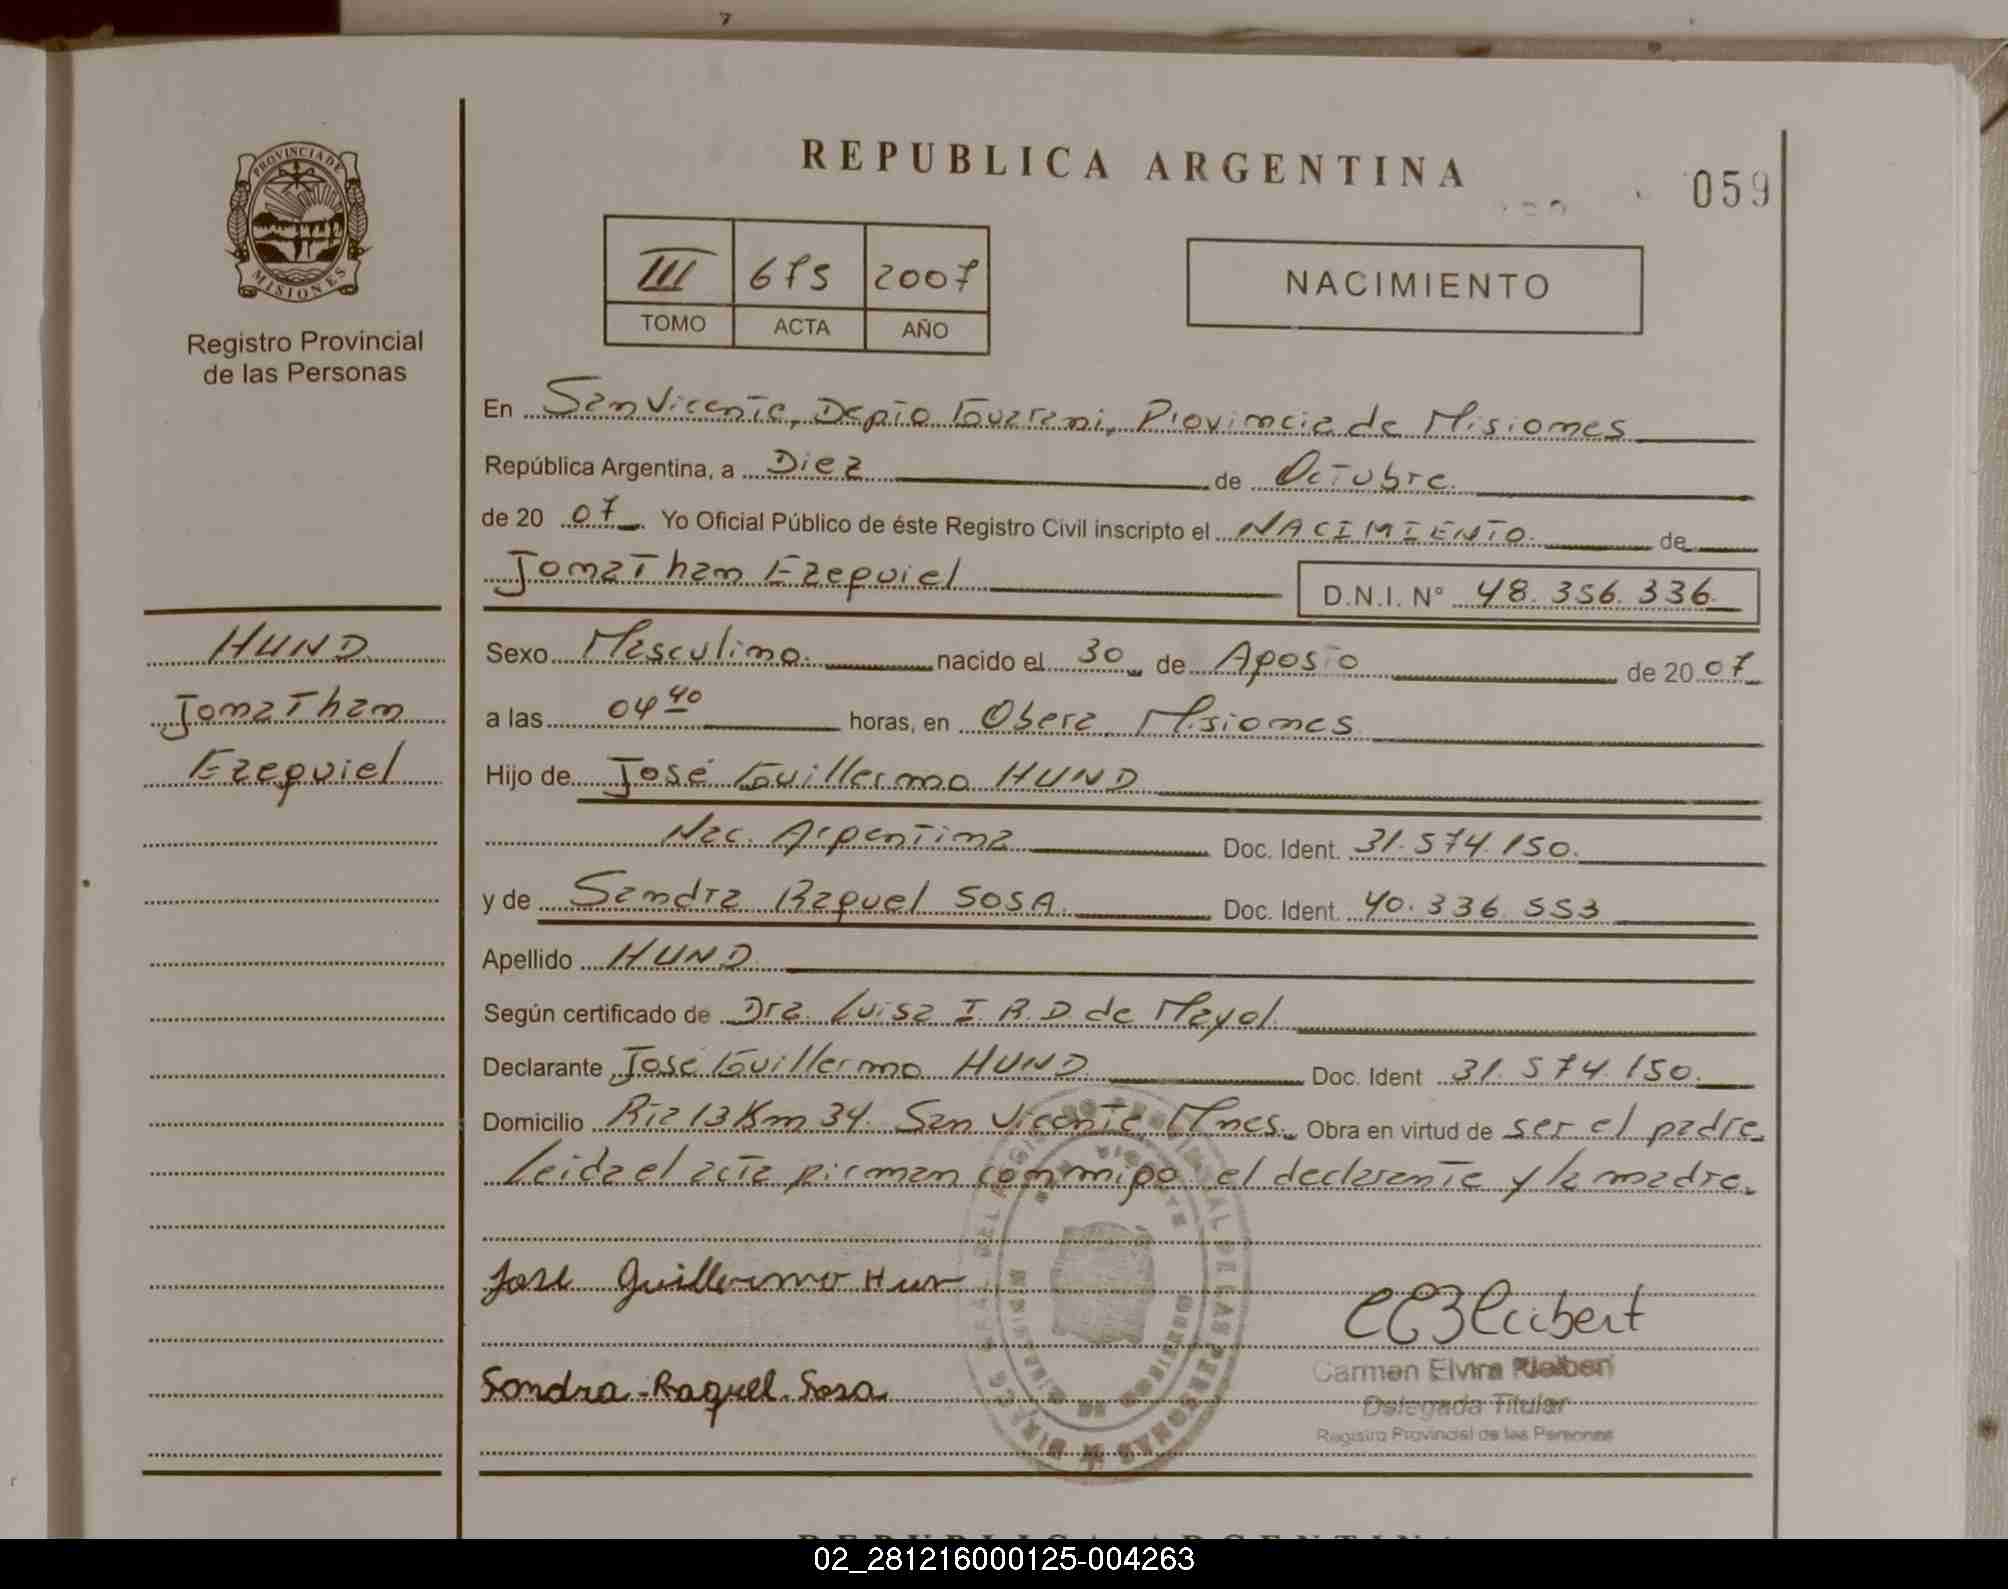 REPUBLICA ARGENTINA
059
PROVINCIA DE
MISIONES
Registro Provincial
de las Personas
III 675 2007
TOMO ACTA AÑO
NACIMIENTO
En San Vicente, Depto Guarani, Provincia de Misiones
República Argentina, a Diez de Octubre
de 20 07 Yo Oficial Público de éste Registro Civil inscripto el NACIMIENTO de
Jonathan Ezequiel D.N.I. N° 48.356.336
HUND
Jonathan
Ezequiel
Sexo Masculino nacido el 30 de Agosto de 20 07
a las 04 40 horas, en Obera, Misiones
Hijo de José Guillermo HUND
Nac. Argentina Doc. Ident. 31.574.150.
y de Sandra Raquel SOSA Doc. Ident. 40.336.553
Apellido HUND
Según certificado de Dra. Luisa I. R. D. de Mayol.
Declarante José Guillermo HUND Doc. Ident 31.574.150.
Domicilio Rta 13 Km 34. San Vicente, Mnes. Obra en virtud de ser el padre.
Leida el acta firman conmigo el declarante y la madre.
José Guillermo Hun
Sandra Raquel Sosa
Carmen Elvira
Delegada Titular
Registro Provincial de las Personas
02_281216000125-004263